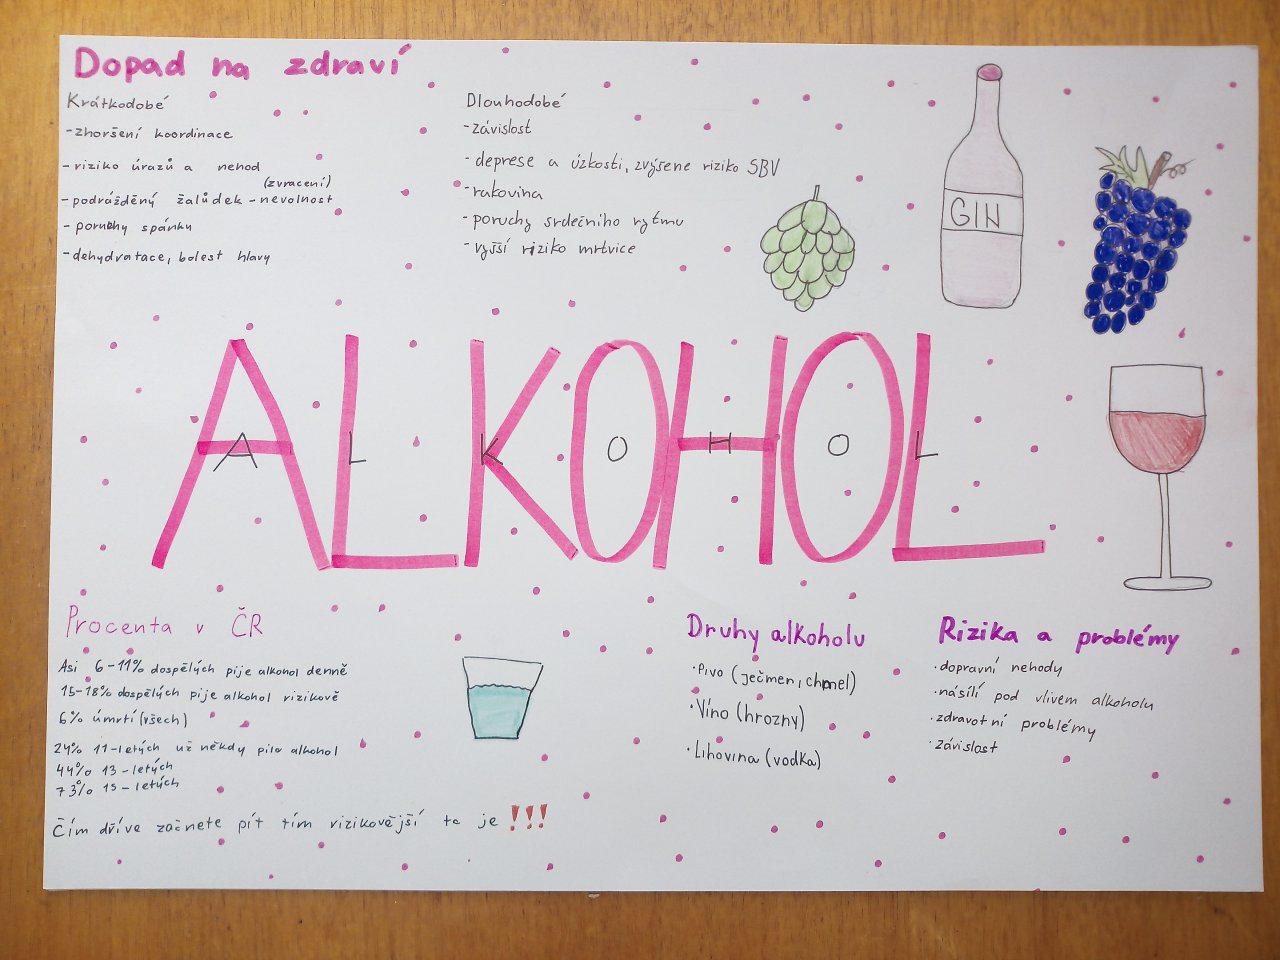 Dopad na zdraví
Krátkodobé
-zhoršení koordinace
-riziko úrazů a nehod
(zvracení)
-podrážděný žalůdek -nevolnost
-poruchy spánku
-dehydratace, bolest hlavy
Dlouhodobé
-závislost
-deprese a úzkosti, zvýšene riziko SBV
-rakovina
-poruchy srdečního rytmu
-vyšší riziko mrtvice
GIN
ALKOHOL
A L K O H O L
Procenta v ČR
Asi 6-11% dospělých pije alkohol denně
15-18% dospělých pije alkohol rizikově
6% úmrtí (všech)
24% 11-letých už někdy pilo alkohol
44% 13-letých
73% 15-letých
Čím dříve začnete pít tím rizikovější to je !!!
Druhy alkoholu
·Pivo (ječmen, chmel)
·Víno (hrozny)
·Lihovina (vodka)
Rizika a problémy
·dopravní nehody
·násilí pod vlivem alkoholu
·zdravotní problémy
·závislost